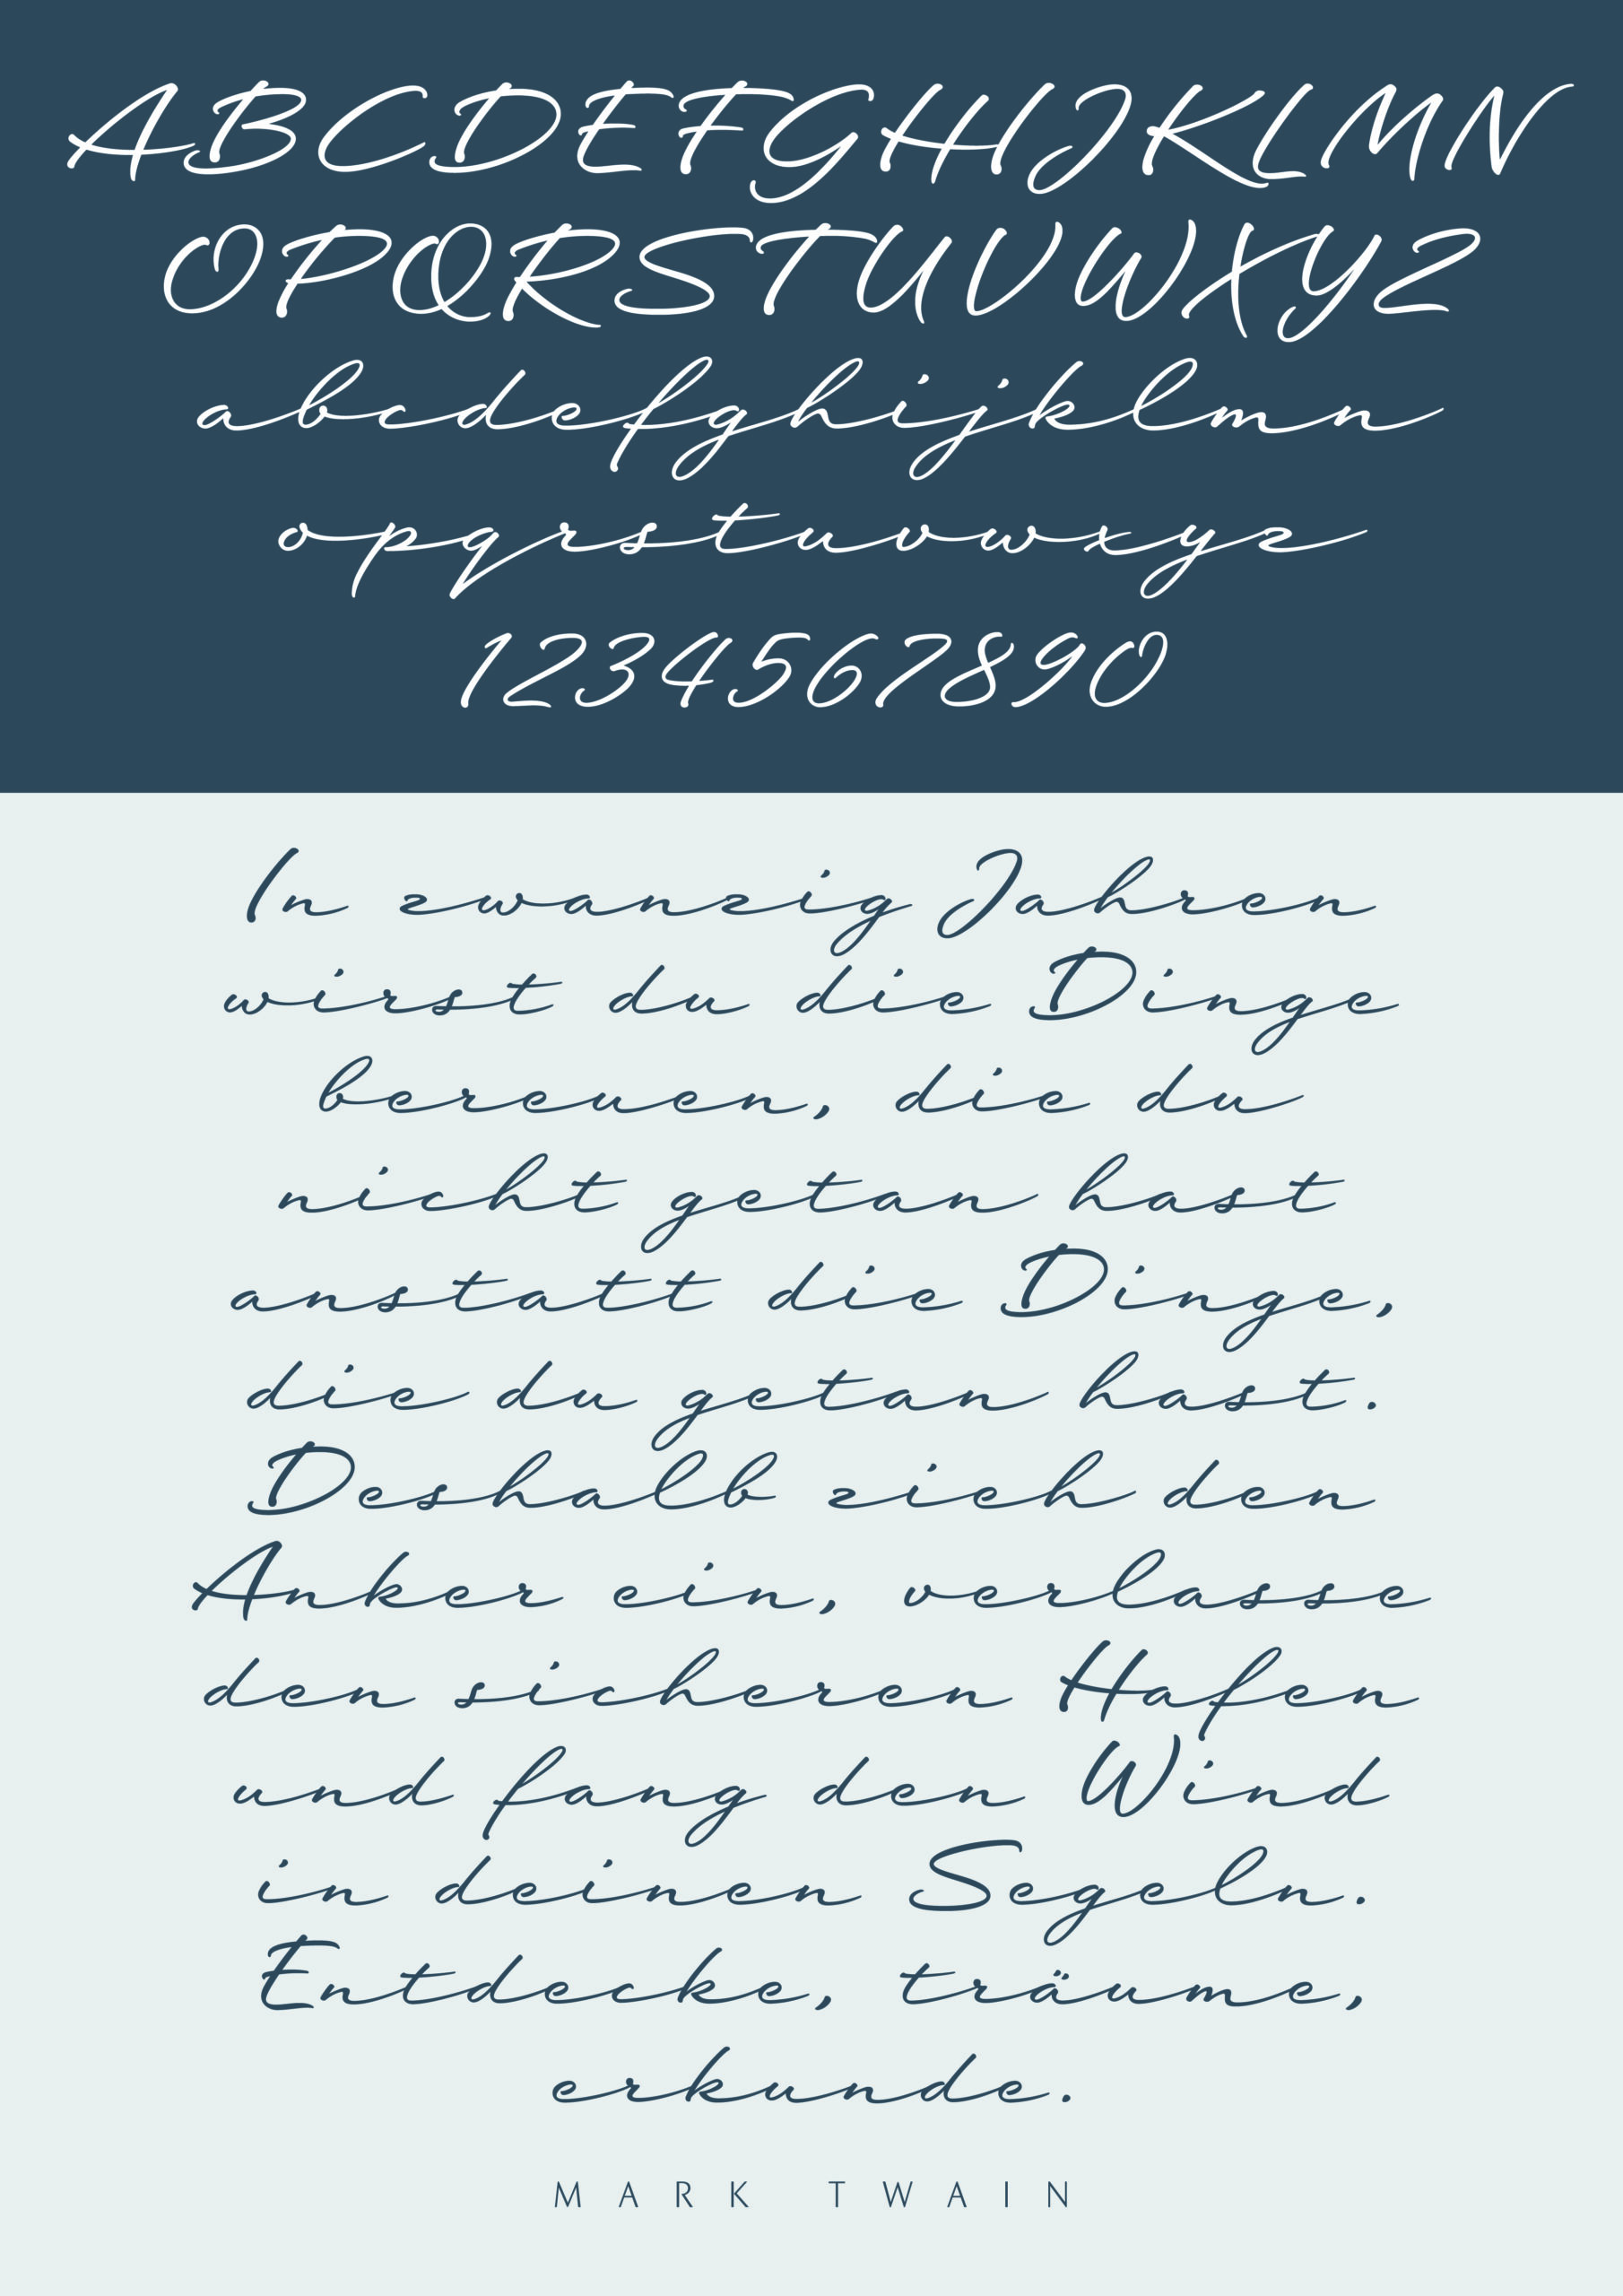 ABCDEFGHIJKLMN
OPQRSTUVWXYZ
abcdefghijklmn
opqrstuvwxyz
1234567890
In zwanzig Jahren
wirst du die Dinge
bereuen, die du
nicht getan hast
anstatt die Dinge,
die du getan hast.
Deshalb zieh den
Anker ein, verlasse
den sicheren Hafen
und fang den Wind
in deinen Segeln.
Entdecke, träume,
erkunde.
MARK TWAIN